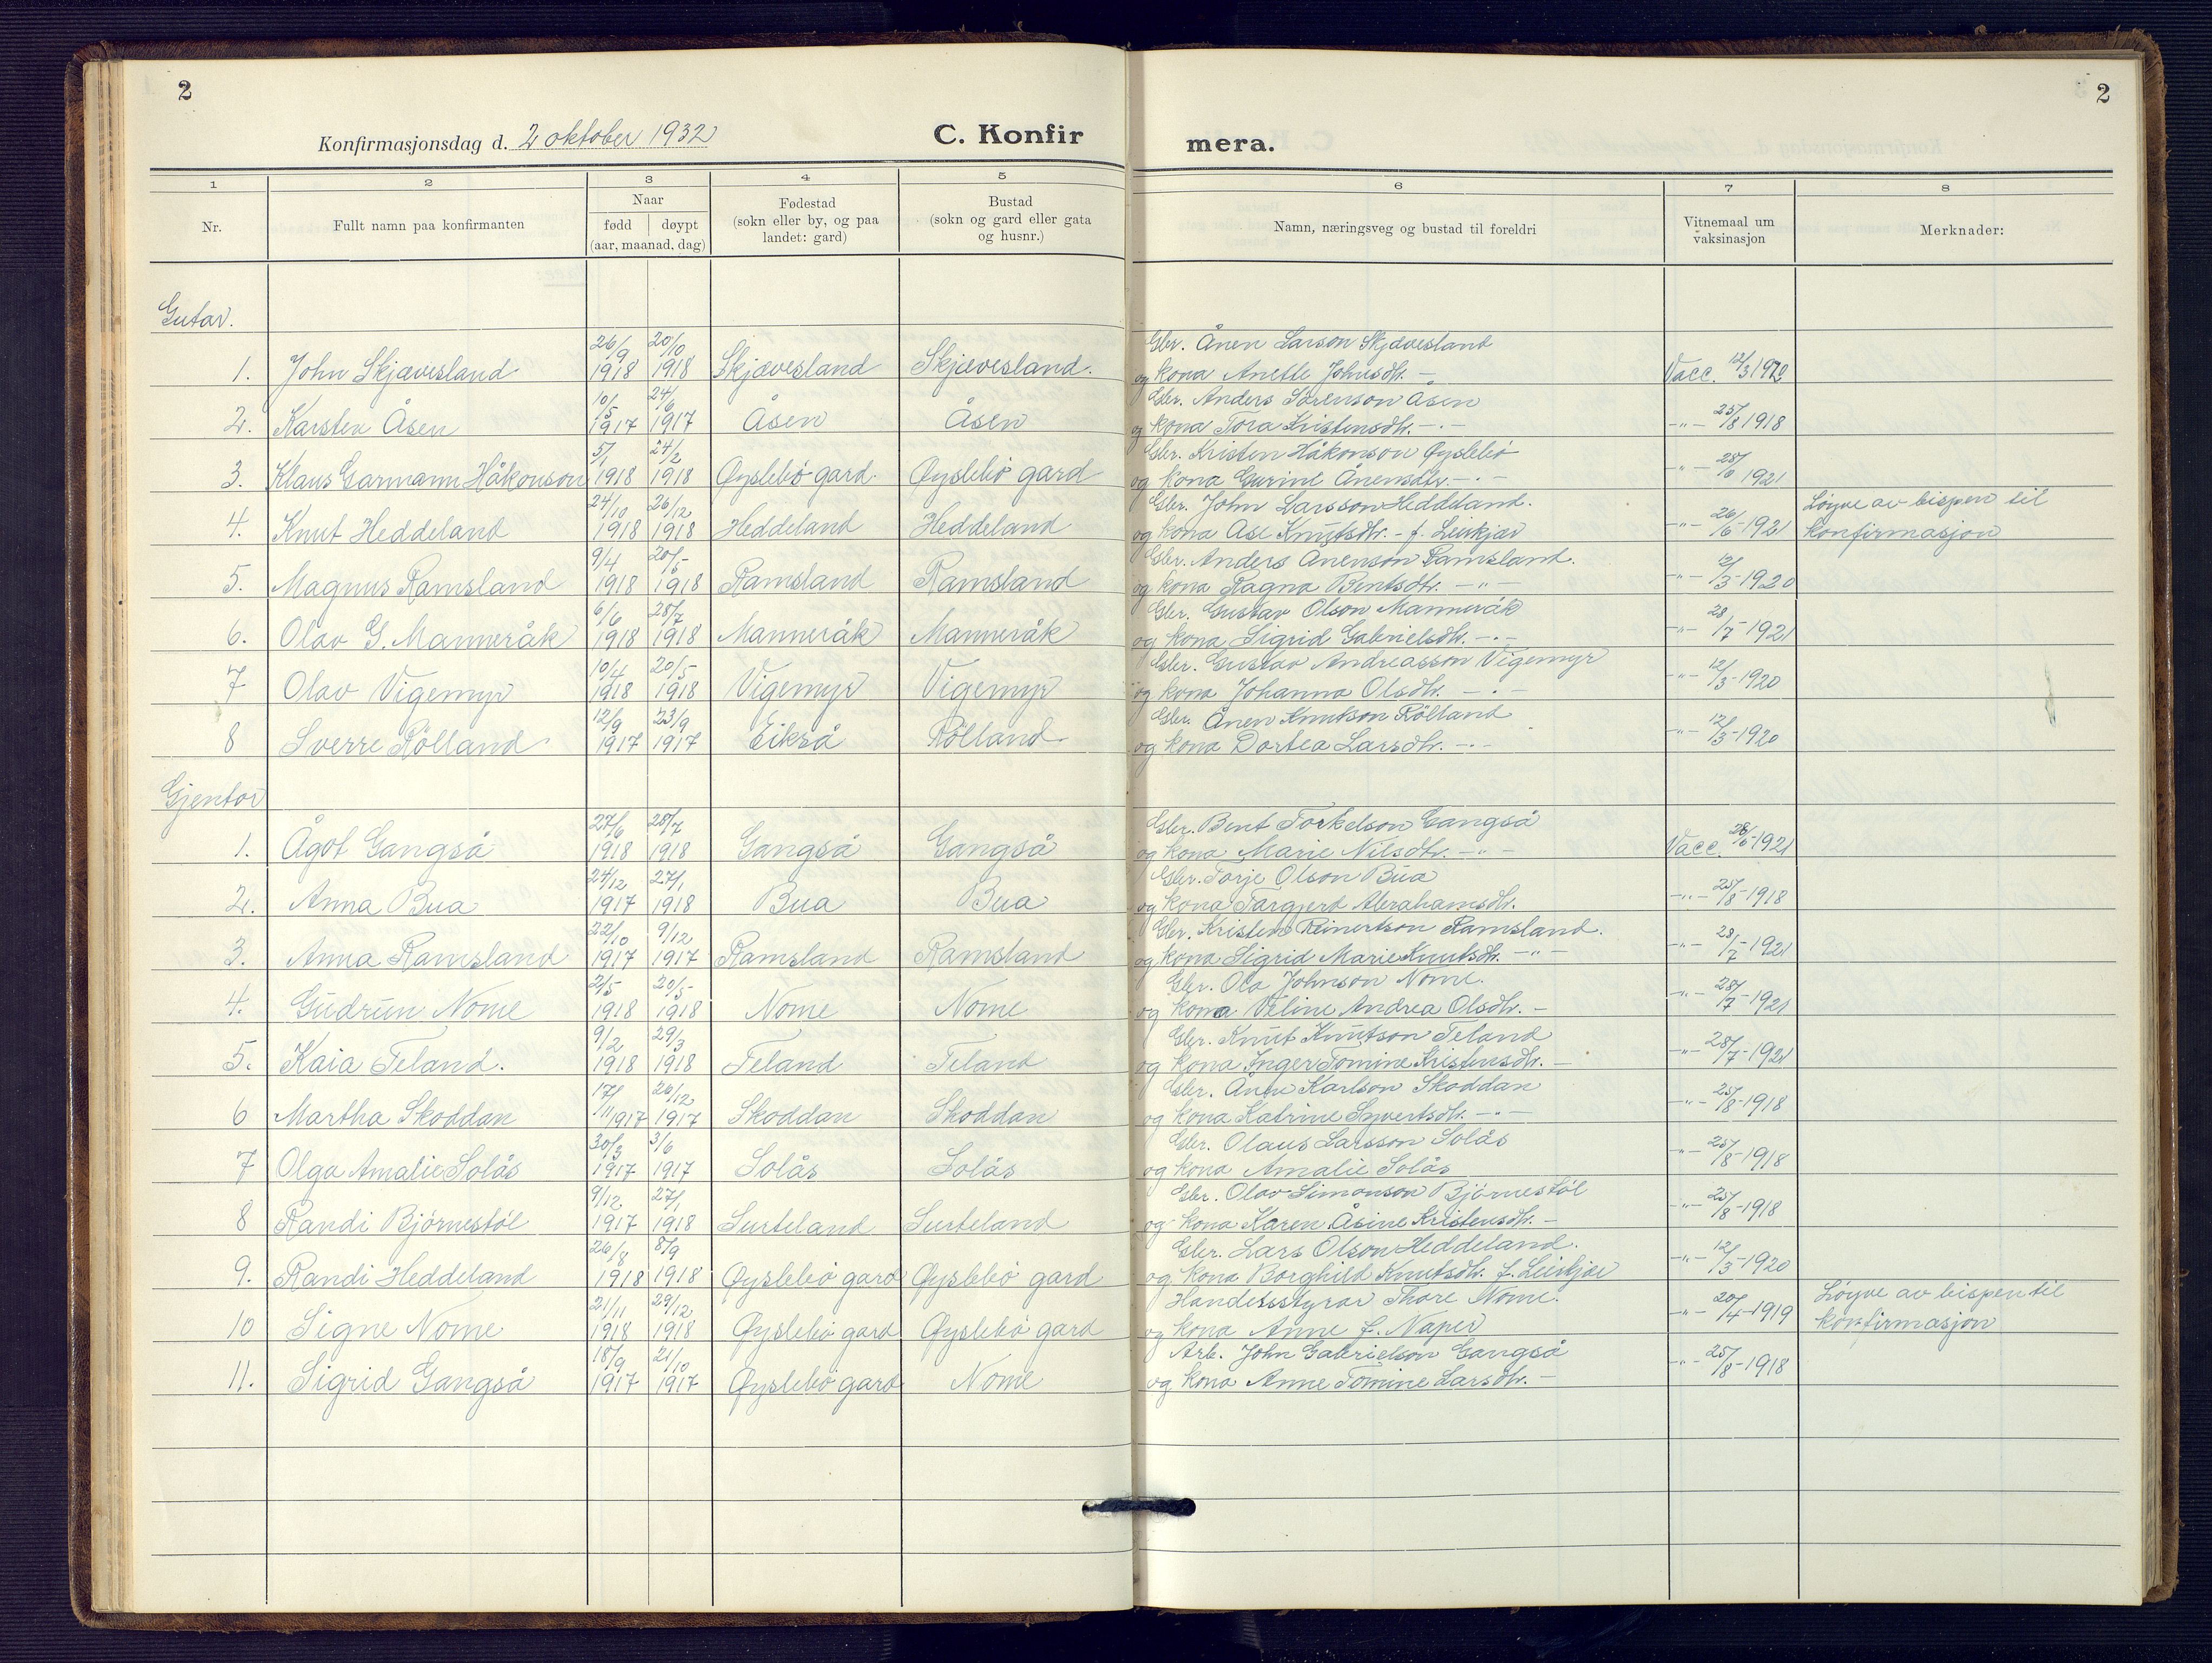 2
2
Konfirmasjonsdag d. 2 oktober 1932
C. Konfir
mera.
1 2 3 4 5 6 7 8
Nr.
Fullt namn paa konfirmanten
Naar
fødd døypt
(aar, maanad, dag)
Fødestad
(sokn eller by, og paa
landet: gard)
Bustad
(sokn og gard eller gata
og husnr.)
Namn, næringsveg og bustad til foreldri
Vitnemaal um
vaksinasjon
Merknader:
Gutar.
26/9 20/10 Gbr. Ånen Larson Skjævesland
1. John Skjævesland 1918 1918 Skjævesland Skjævesland. og kona Anette Johnsdtr. - Vacc. 12/3 1920
10/5 24/6 Gbr. Anders Sørenson Åsen
2. Karsten Åsen 1917 1917 Åsen Åsen og kona Tora Kristensdtr. -·- -"- 25/8 1918
5/1 24/2 Gbr. Kristen Håkonson Øyslebö
3. Klaus Garmann Håkonson 1918 1918 Øyslebö gard. Øyslebö gard og kona Gurine Ånensdtr. -·- -"- 1921
24/10 26/12 Gbr. John Larsson Heddeland. Løyve av bispen til
4. Knut Heddeland 1918 1918 Heddeland Heddeland og kona Åse Knutsdtr. - f. Leirkjær -"- 26/6-1921 konfirmasjon
9/4 20/5 Gbr. Anders Ånenson Ramsland.
5. Magnus Ramsland 1918 1918 Ramsland Ramsland og kona Ragna Bentsdtr. -"- -"- 12/3-1920
6/6 28/7 Gbr. Gustav Olson Manneråk
6. Olav G. Manneråk 1918 1918 Manneråk Manneråk og kona Sigrid Gabrielsdtr. -·- -"- 28/7-1921
10/4 20/5 Gbr. Gustav Andreasson Vigemyr
7 Olav Vigemyr 1918 1918 Vigemyr Vigemyr og kona Johanna Olsdtr. -·- -"- 12/3-1920
12/9 23/9 Gbr. Ånen Knutson Rölland
8 Sverre Rölland 1917 1917 Eikså Rölland og kona Dortea Larsdtr. -·- -"- 12/3-1920
Gjentor
27/6 28/7 Gbr. Bent Torkelson Gangså
1. Ågot Gangså 1918 1918 Gangså Gangså og kona Marie Nilsdtr. -"- Vacc. 26/6-1921
24/12 27/1 Gbr. Torje Olson Bua
2. Anna Bua 1917 1918 Bua Bua og kona Targjerd Abrahamsdtr. -"- 25/8-1918
22/10 9/12 Gbr. Kristen Reinertson Ramsland.
3. Anna Ramsland 1917 1917 Ramsland Ramsland og kona Sigrid Marie Knutsdtr. -"- -"- 28/7-1921
2/5 20/5 Gbr. Ola Johnson Nome.
4. Gudrun Nome 1918 1918 Nome Nome og kona Veline Andrea Olsdtr. - -"- 28/7-1921
9/2 29/3 Gbr. Knut Knutson Teland
5. Kaia Teland. 1918 1918 Teland Teland og kona Inger Tomine Kristensdtr. - -"- 28/7-1921
17/ 26/12 Gbr. Karlson Skoddan
6 Martha Skoddan /11 1917 1917 Skoddan Skoddan og kona Katrine Syvertsdtr. -"- -"- 25/8-1918
30/3 3/6 Gbr. Olaus Larsson Solås
7 Olga Amalie Solås 1917 1917 Solås Solås og kona Amalie Solås -"- 25/8-1918
9/12 27/1 Gbr. Olav Simonson Björnestöl
8 Randi Björnestöl 1917 1918 Surteland Surteland og kona Karen Åsine Kristensdtr. - -"- 25/8-1918
26/8 8/9 Gbr. Lars Olson Heddeland.
9. Randi Heddeland 1918 1918 Øyslebö gard Øyslebö gard og kona Borghild Knutsdtr. f. Leirkjær -"- 12/3-1920
21/11 29/12 Handelsstyrar Thore Nome. Løyve av bispen til
10 Signe Nome 1918 1918 Øyslebö gard Øyslebö gard og kona Anne f. Naper -"- 20/4-1919 konfirmasjon
18/9 21/10 Arb. John Gabrielson Gangså
11. Sigrid Gangså 1917 1917 Øyslebö gard Nome og kona Anne Tomine Larsdtr. - -"- 25/8-1918